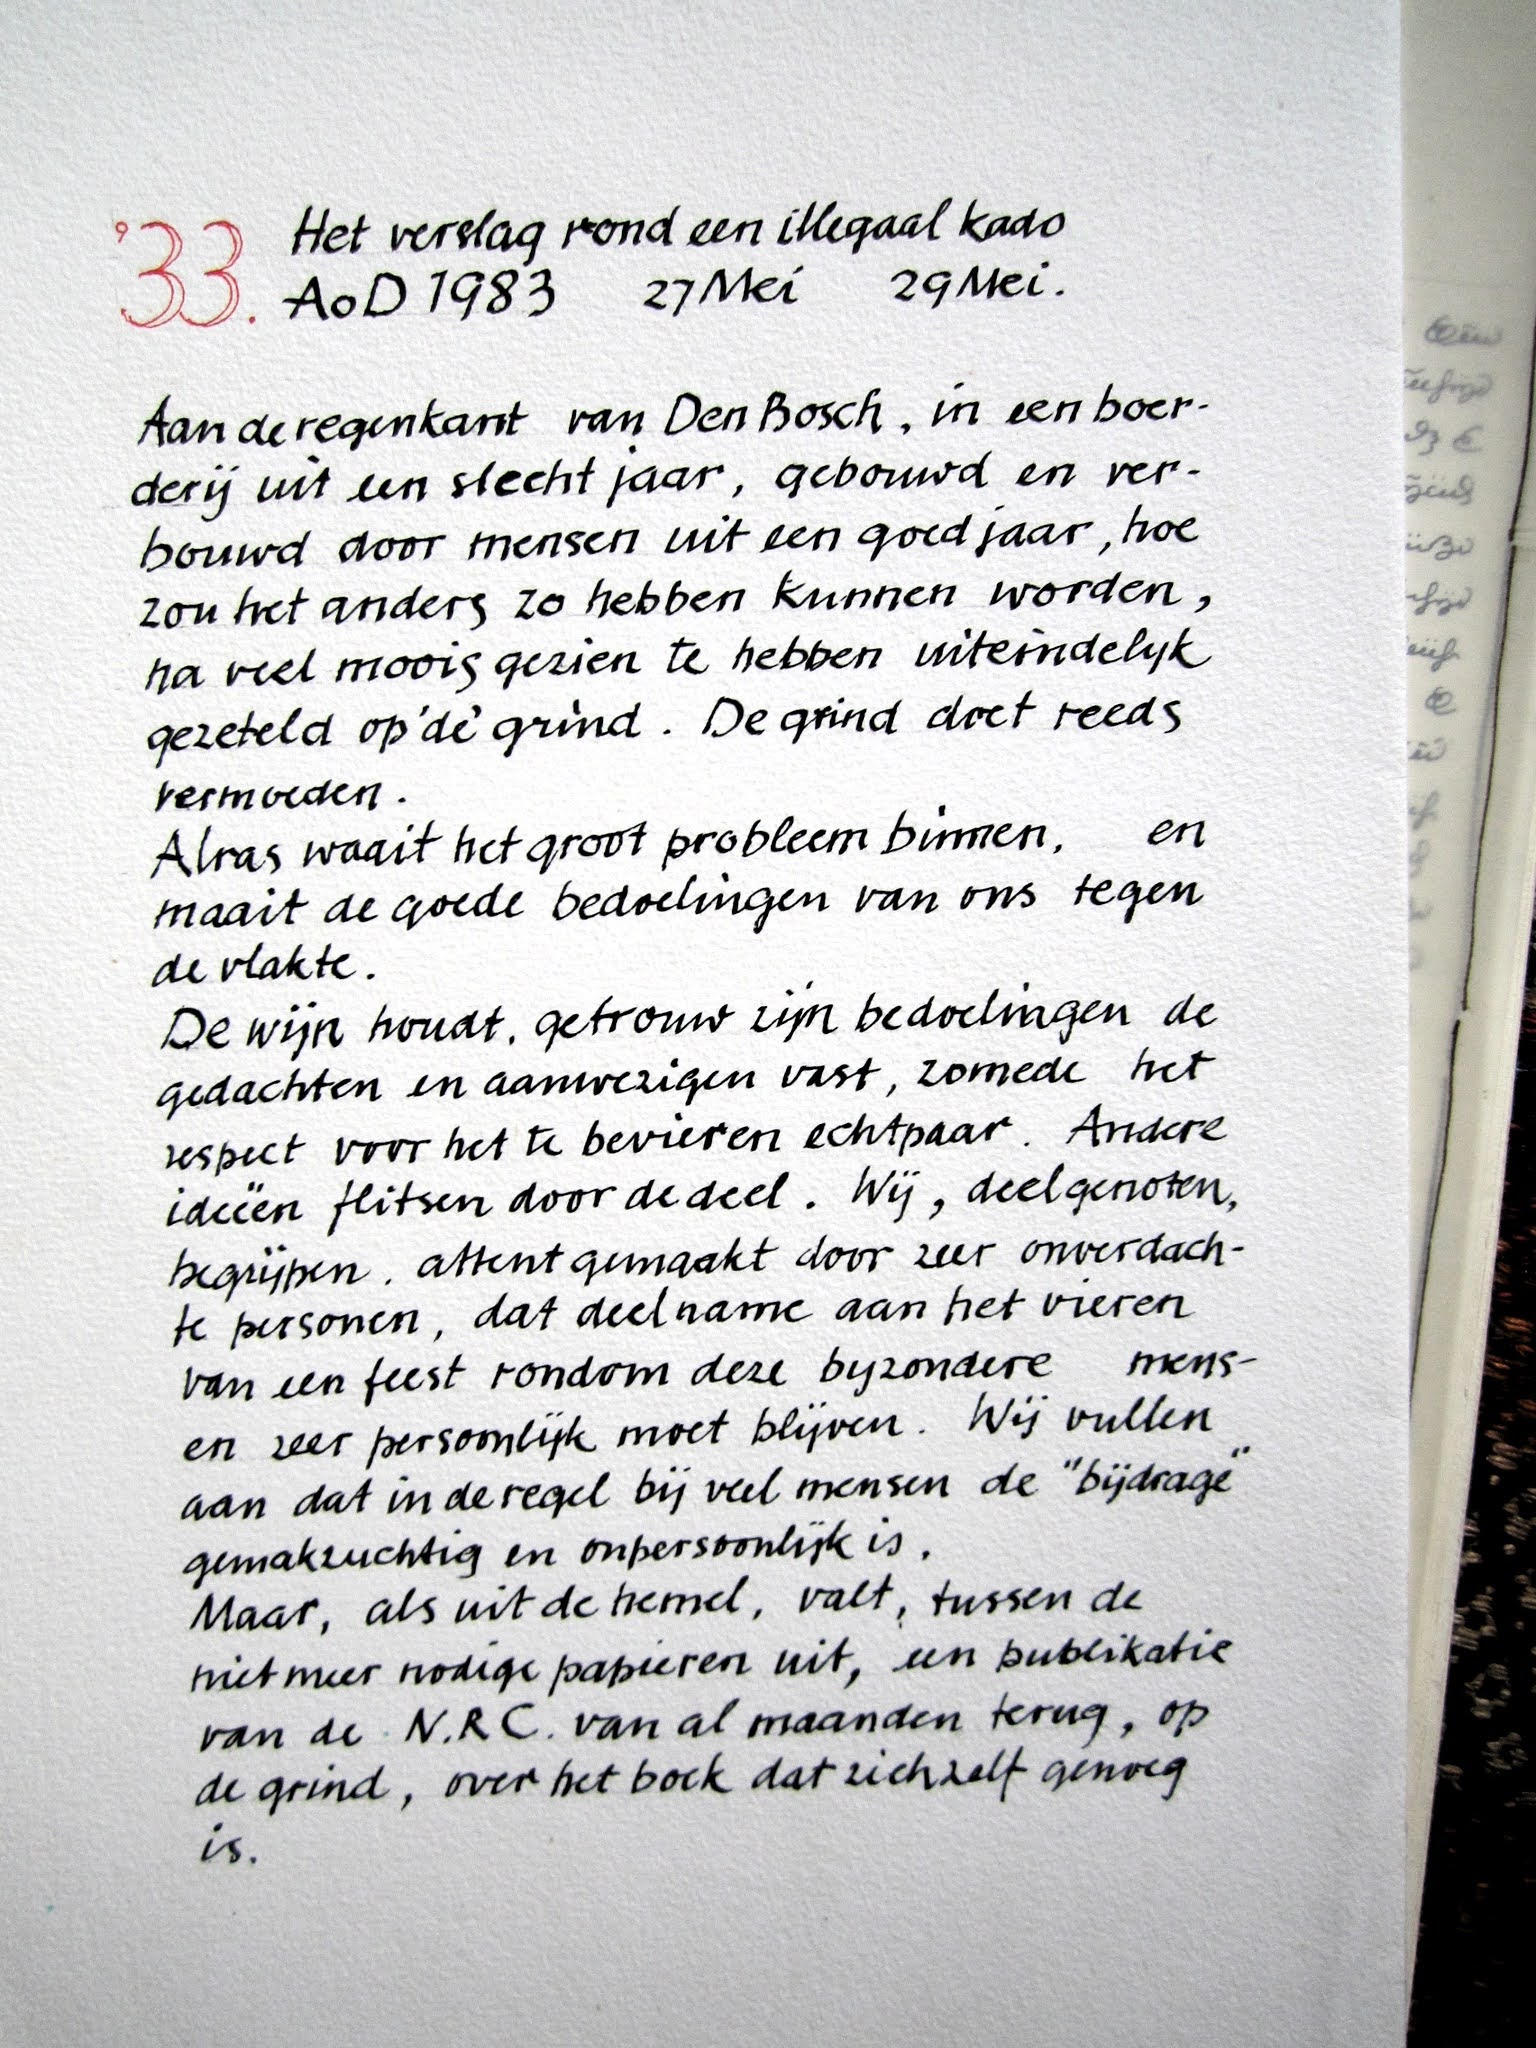 '33. Het verslag rond een illegaal kado
AoD 1983 27 Mei 29 Mei.
Aan de regenkant van Den Bosch, in een boer-
derij uit een slecht jaar, gebouwd en ver-
bouwd door mensen uit een goed jaar, hoe
zou het anders zo hebben kunnen worden,
na veel moois gezien te hebben uiteindelijk
gezeteld op 'de' grind. De grind doet reeds
vermoeden.
Alras waait het groot probleem binnen, en
maait de goede bedoelingen van ons tegen
de vlakte.
De wijn houdt, getrouw zijn bedoelingen de
gedachten en aanwezigen vast, zomede het
respect voor het te bevieren echtpaar. Andere
ideeën flitsen door de deel. Wij, deelgenoten,
begrijpen, attent gemaakt door zeer onverdach-
te personen, dat deelname aan het vieren
van een feest rondom deze byzondere mens-
en zeer persoonlijk moet blijven. Wij vullen
aan dat in de regel bij veel mensen de "bijdrage"
gemakzuchtig en onpersoonlijk is.
Maar, als uit de hemel, valt, tussen de
niet meer nodige papieren uit, een publikatie
van de N.R.C. van al maanden terug, op
de grind, over het boek dat zichzelf genoeg
is.